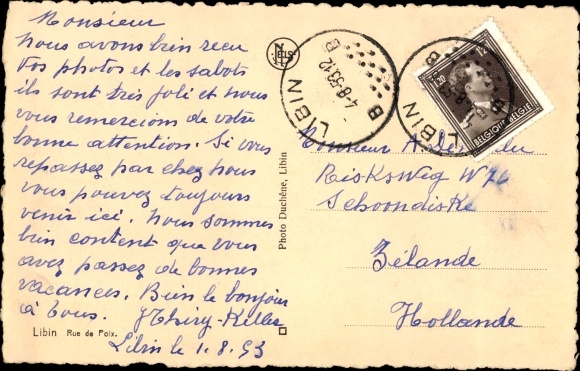 Monsieur
nous avons bien recu
vos photos et les sabots
ils sont très joli et nous
vous remercions de votre
bonne attention. Si vous
repassez par chez nous
vous pouvez toujours
venir ici. nous sommes
bien content que vous
avez passez de bonnes
vacances. Bien le bonjour
à tous. JThiry-Keller
Libin le 1.8.53
Libin Rue de Poix.
Photo Duchêne, Libin
NELS
LIBIN
4-8-53 12
B B
LIBIN
B
BELGIQUE BELGIË
Monsieur A
Rijksweg W 76
Schoondiske
Zélande
Hollande